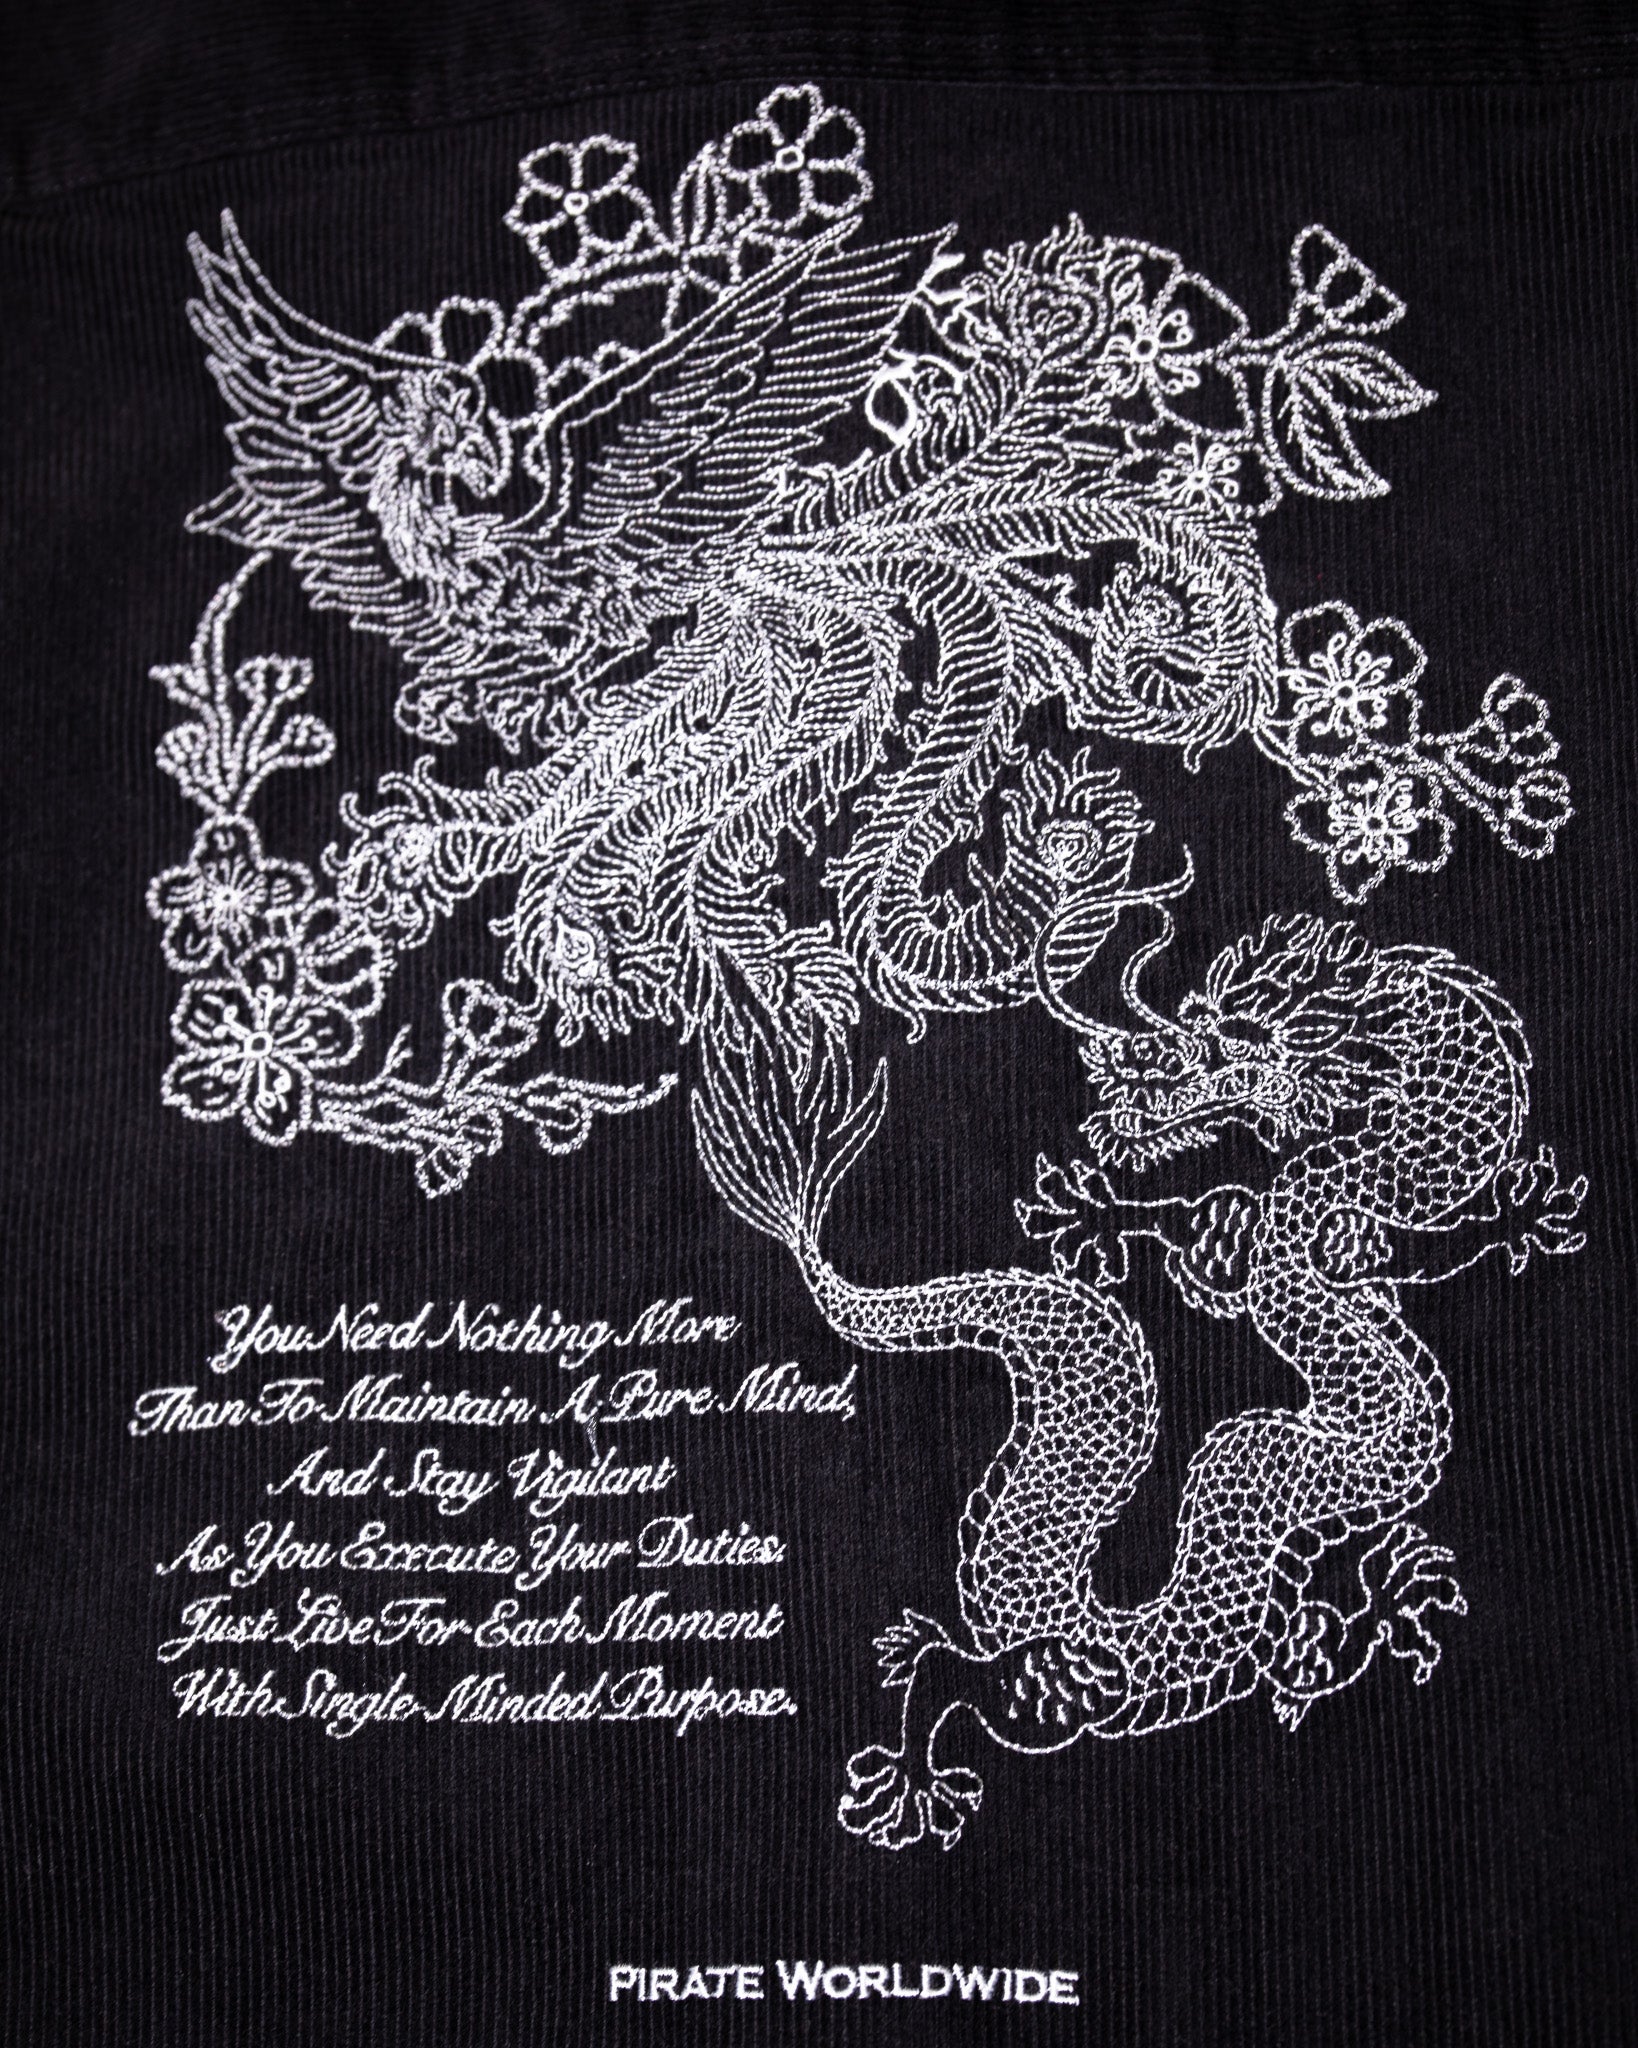 You Need Nothing More
Than To Maintain A Pure Mind,
And Stay Vigilant
As You Execute Your Duties.
Just Live For Each Moment
With Single Minded Purpose.
PIRATE WORLDWIDE